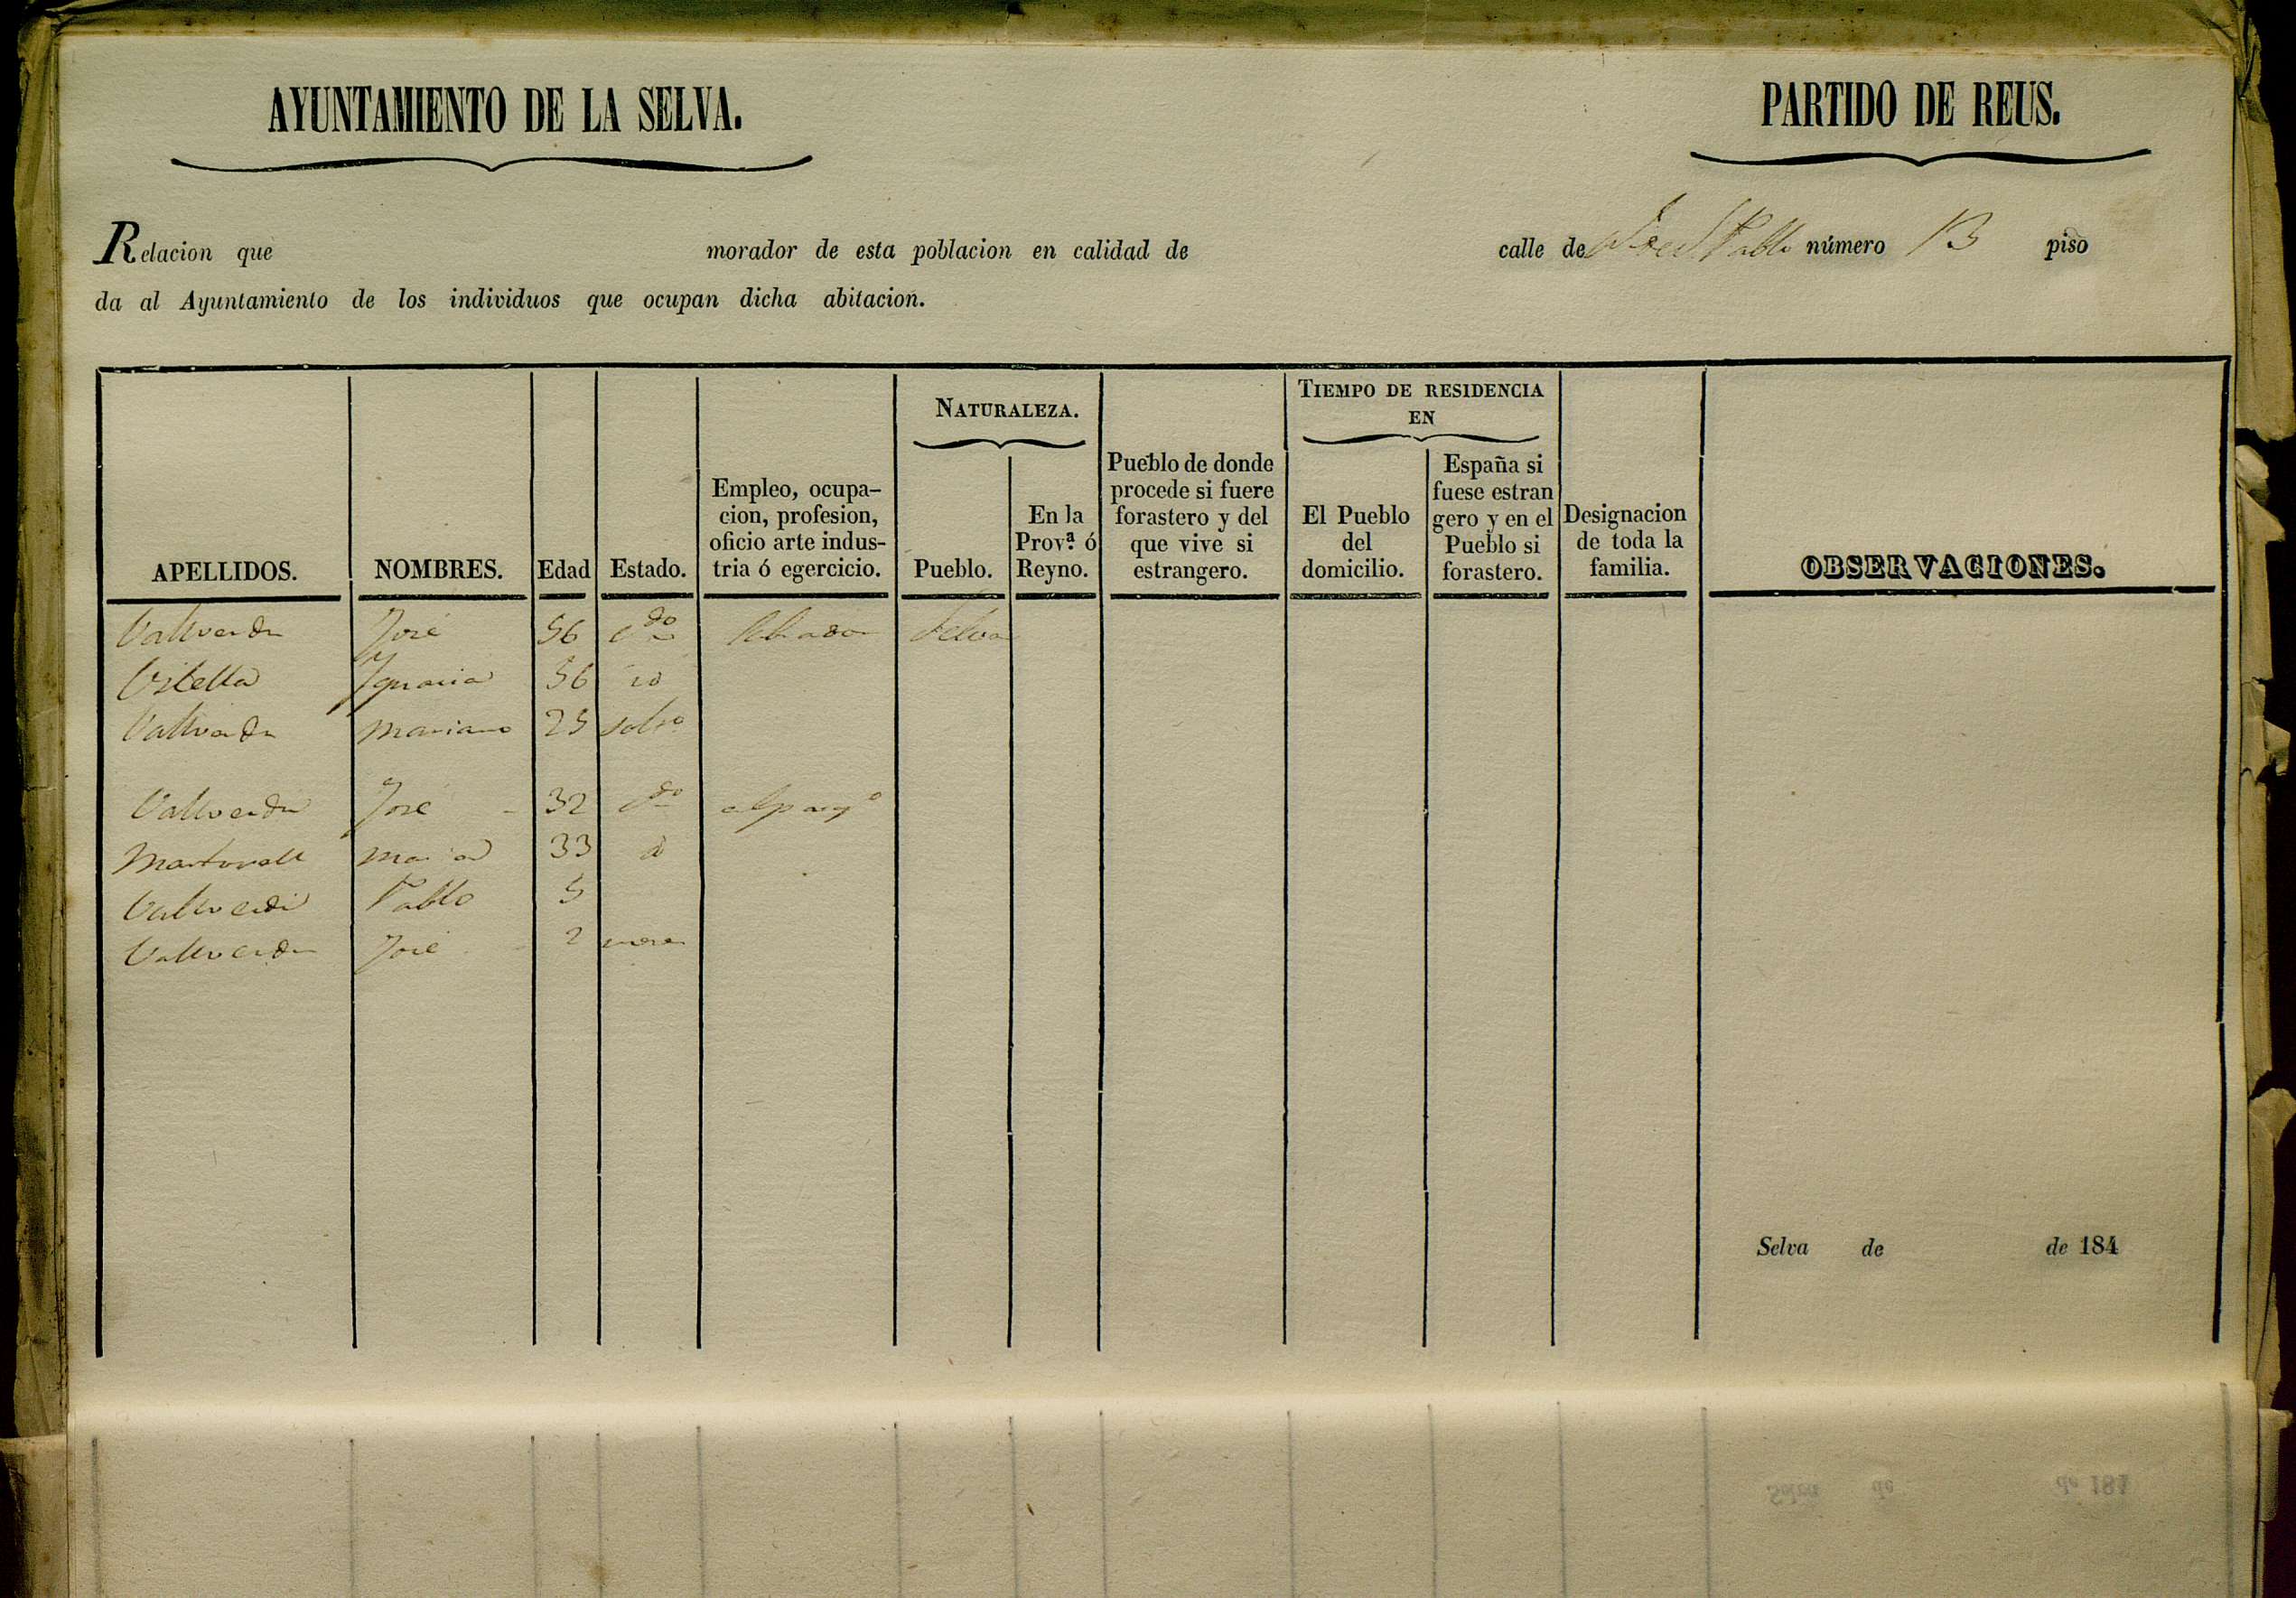 AYUNTAMIENTO DE LA SELVA.
PARTIDO DE REUS.
Relacion que morador de esta poblacion en calidad de calle de Pablo número 13 piso
da al Ayuntamiento de los individuos que ocupan dicha abitacion.
APELLIDOS.
NOMBRES.
Edad
Estado.
Empleo, ocupa-
cion, profesion,
oficio arte indus-
tria ó egercicio.
NATURALEZA.
Pueblo.
En la
Prov.ª ó
Reyno.
Pueblo de donde
procede si fuere
forastero y del
que vive si
estrangero.
TIEMPO DE RESIDENCIA
EN
El Pueblo
del
domicilio.
España si
fuese estran
gero y en el
Pueblo si
forastero.
Designacion
de toda la
familia.
OBSERVACIONES.
Vallverdu José 56 cdo labrador Selva
Vilella Ignacia 56
Vallverdu Mariano 25 solto
Vallverdu José 32 cdo alpargo
Martorell Maria 33
Vallverdu Pablo 5
Vallverdu José 2 meses
Selva de de 184